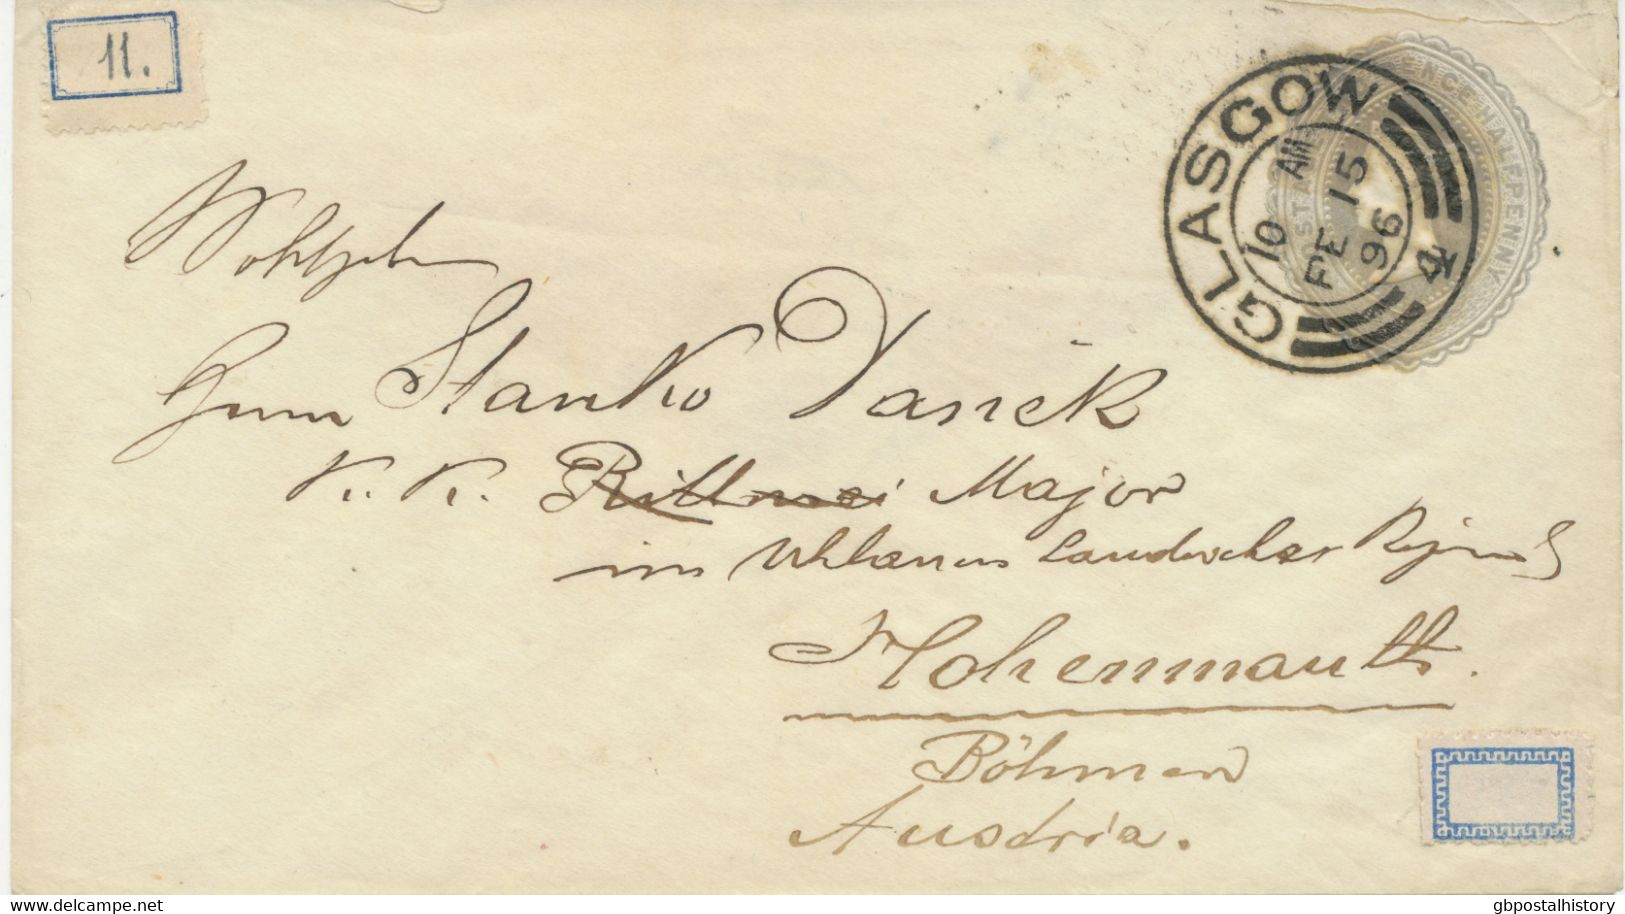 11.
GLASGOW
10 AM
FE 15
96
4
STA ENCE HALFPENNY
Wohlgeb
Herrn Stanko Vanick
K. K. Major
im Uhlanen Landwehr
Hohenmauth.
Böhmen
Austria.
delcampe.net
gbpostalhistory